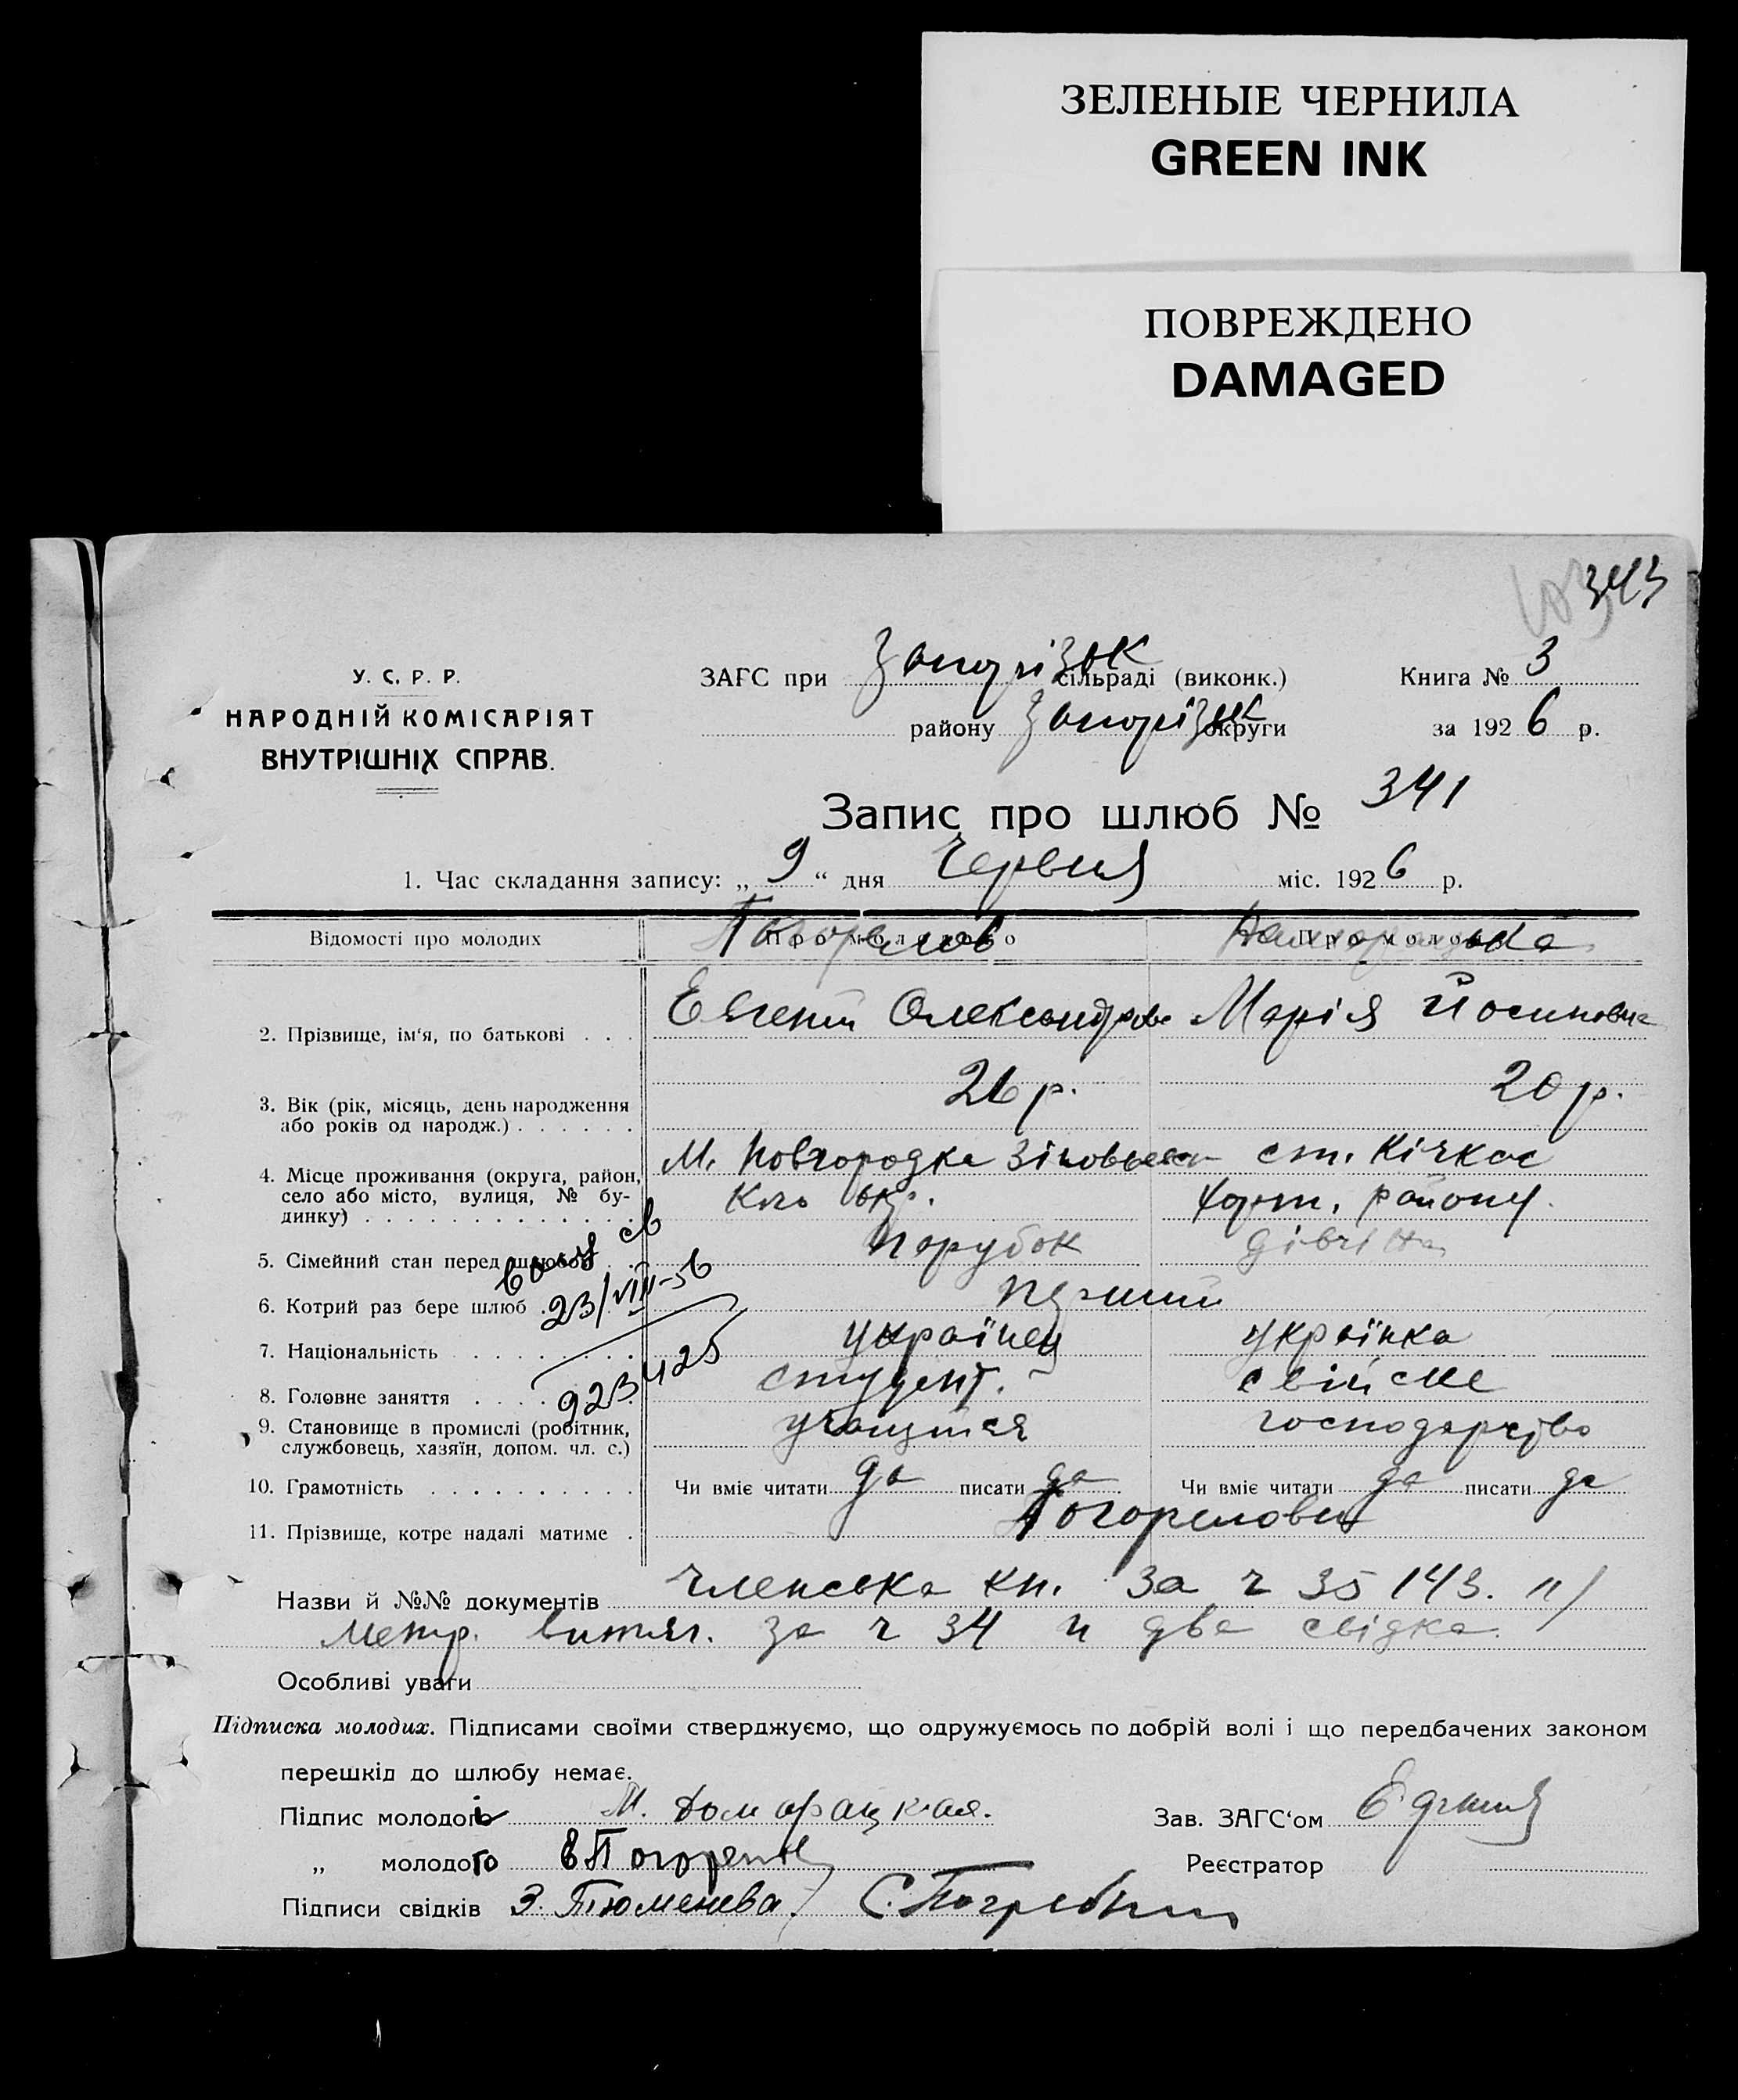 ЗЕЛЕНЫЕ ЧЕРНИЛА
GREEN INK
ПОВРЕЖДЕНО
DAMAGED
343
У. С. Р. Р.
НАРОДНІЙ КОМІСАРІЯТ
ВНУТРІШНІХ СПРАВ.
ЗАГС при Запорізьк сільраді (виконк.) Книга № 3
району Запорізьк округи за 1926 р.
Запис про шлюб № 341
1. Час складання запису: „ 9 “ дня Червня міс. 1926 р.
Відомості про молодих Про молодого Про молоду
Погорелов
2. Прізвище, ім'я, по батькові . . . Евгений Олександров Марія Йосиповна
3. Вік (рік, місяць, день народження або років од народж.) . . . . . . 26 р. 20 р.
4. Місце проживання (округа, район, село або місто, вулиця, № будинку) . . . М. Новгородка Зіновьевск ст. Кічкас
окр. району
5. Сімейний стан перед шлюбом . . парубок дівчина
6. Котрий раз бере шлюб . перший
23/VIII-56
7. Національність . . . українец українка
923425
8. Головне заняття . . . студент. сільске
9. Становище в промислі (робітник, службовець, хазяїн, допом. чл. с.) учащийся господарство
10. Грамотність . . . Чи вміє читати да писати да Чи вміє читати да писати да
11. Прізвище, котре надалі матиме . Погорелови
Назви й №№ документів членська кн. за ч 35143. и
метр. витяг. за ч 34 и два свідка.
Особливі уваги
Підписка молодих. Підписами своїми стверджуємо, що одружуємось по добрій волі і що передбачених законом
перешкід до шлюбу немає.
Підпис молодої М. Домарацкая. Зав. ЗАГС'ом
„ молодого Е Погорелов Реєстратор
Підписи свідків З. Тюменева.